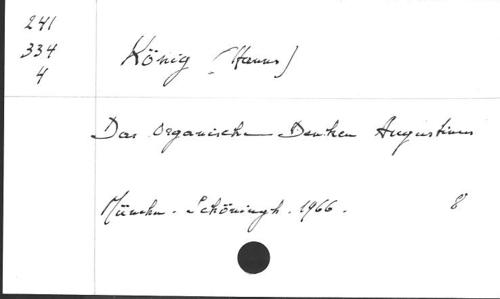 241
334
4
König (Hanns)
Das organische Denken Augustinus
München. Schöningh. 1966.
8°